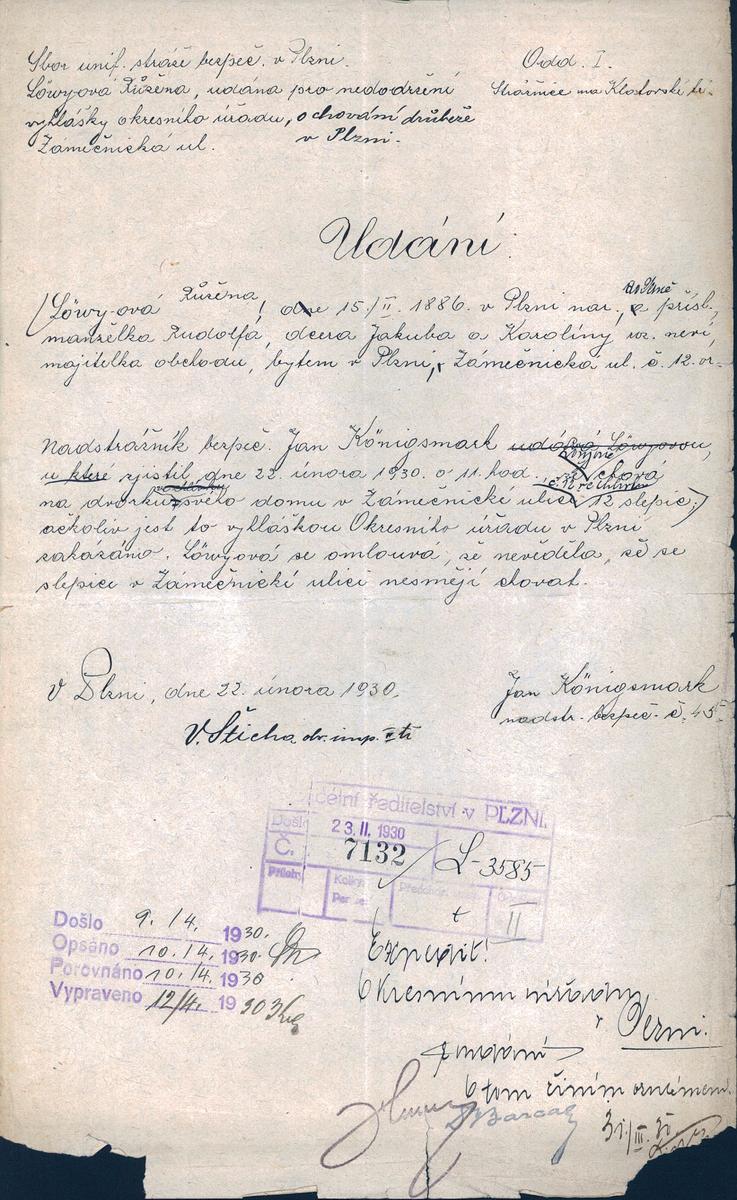 Sbor unif. stráže bezpeč. v Plzni.
Odd. I.
Löwy-ová Růžena, udána pro nedodržení
Strážnice na Klatovské tř.
vyhlášky okresního úřadu, o chování drůbeže
v Plzni.
Zámečnická ul.
Udání.
Löwy-ová Růžena, dne 15./II. 1886. v Plzni nar., a přísl.,
manželka Rudolfa, dcera Jakuba a Karolíny roz. neví,
majitelka obchodu, bytem v Plzni, Zámečnická ul. č. 12.
Nadstrážník bezpeč. Jan Königsmark udává Löwyovou,
u které zjistil, dne 22. února 1930. o 11. hod. chová
na dvorku svého domu v Zámečnické ulici 12 slepic,
ačkoliv jest to vyhláškou Okresního úřadu v Plzni
zakázáno. Löwyová se omlouvá, že nevěděla, že se
slepice v Zámečnické ulici nesmějí chovat.
V Plzni, dne 22. února 1930.
Jan Königsmark
nadstr. bezpeč. č. 45
V. Šticha
ředitelství v PLZNI.
Došlo
23. II. 1930
Č.
7132
L-3585
II
Došlo 9./4. 1930.
Opsáno 10./4. 1930.
Porovnáno 10./4. 1930
Vypraveno 12/4. 1930
Expedit!
Okresnímu úřadu
v Plzni.
O tom činím oznámení
31./III. 30